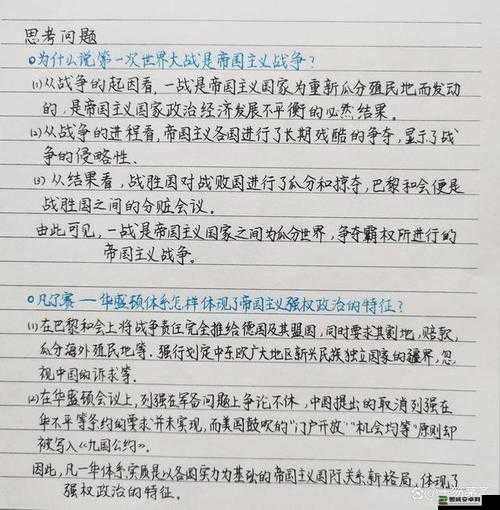 思考问题
○为什么说第一次世界大战是帝国主义战争？
(1)从战争的起因看，一战是帝国主义国家为重新瓜分殖民地而发动
的，是帝国主义国家政治经济发展不平衡的必然结果。
(2)从战争的进程看，帝国主义各国进行了长期残酷的争夺，显示了战
争的侵略性．
(3)从结果看，战胜国对战败国进行了瓜分和掠夺，巴黎和会便是
战胜国之间的分赃会议。
由此可见，一战是帝国主义国家之间为瓜分世界，争夺霸权所进行的
帝国主义战争。
○凡尔赛—华盛顿体系怎样体现了帝国主义强权政治的特征？
(1)在巴黎和会上将战争责任完全推给德国及其盟国，同时要求其割地，赔款，
瓜分海外殖民地等．强行划定中东欧广大地区新兴民族独立国家的疆界，忽
视中国的诉求等．
(2)在华盛顿会议上，列强在军备问题上争论不休，中国提出的取消列强在
华不平等条约的要求并未实现，而美国鼓吹的"门户开放""机会均等"原则却
被写入《九国公约》．
因此，凡—华体系实质是以各国实力为基础的帝国主义国际关系新格局，体现了
强权政治的特征．